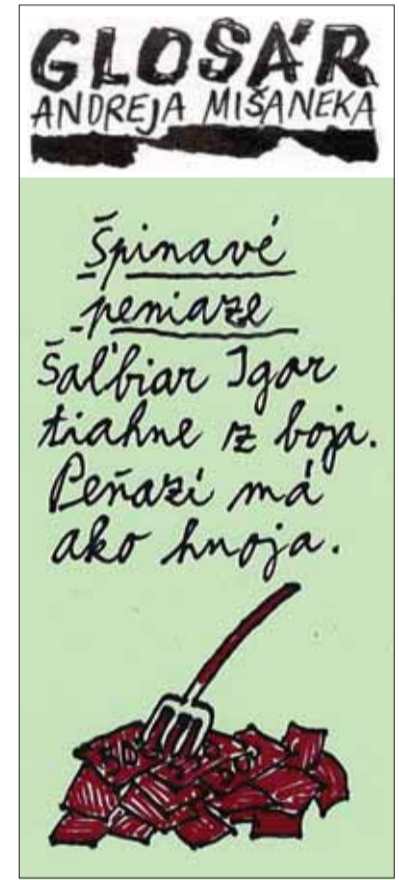 GLOSÁR
ANDREJA MIŠANEKA
Špinavé
peniaze
Šaľbiar Igor
tiahne z boja.
Peňazí má
ako hnoja.
50
50